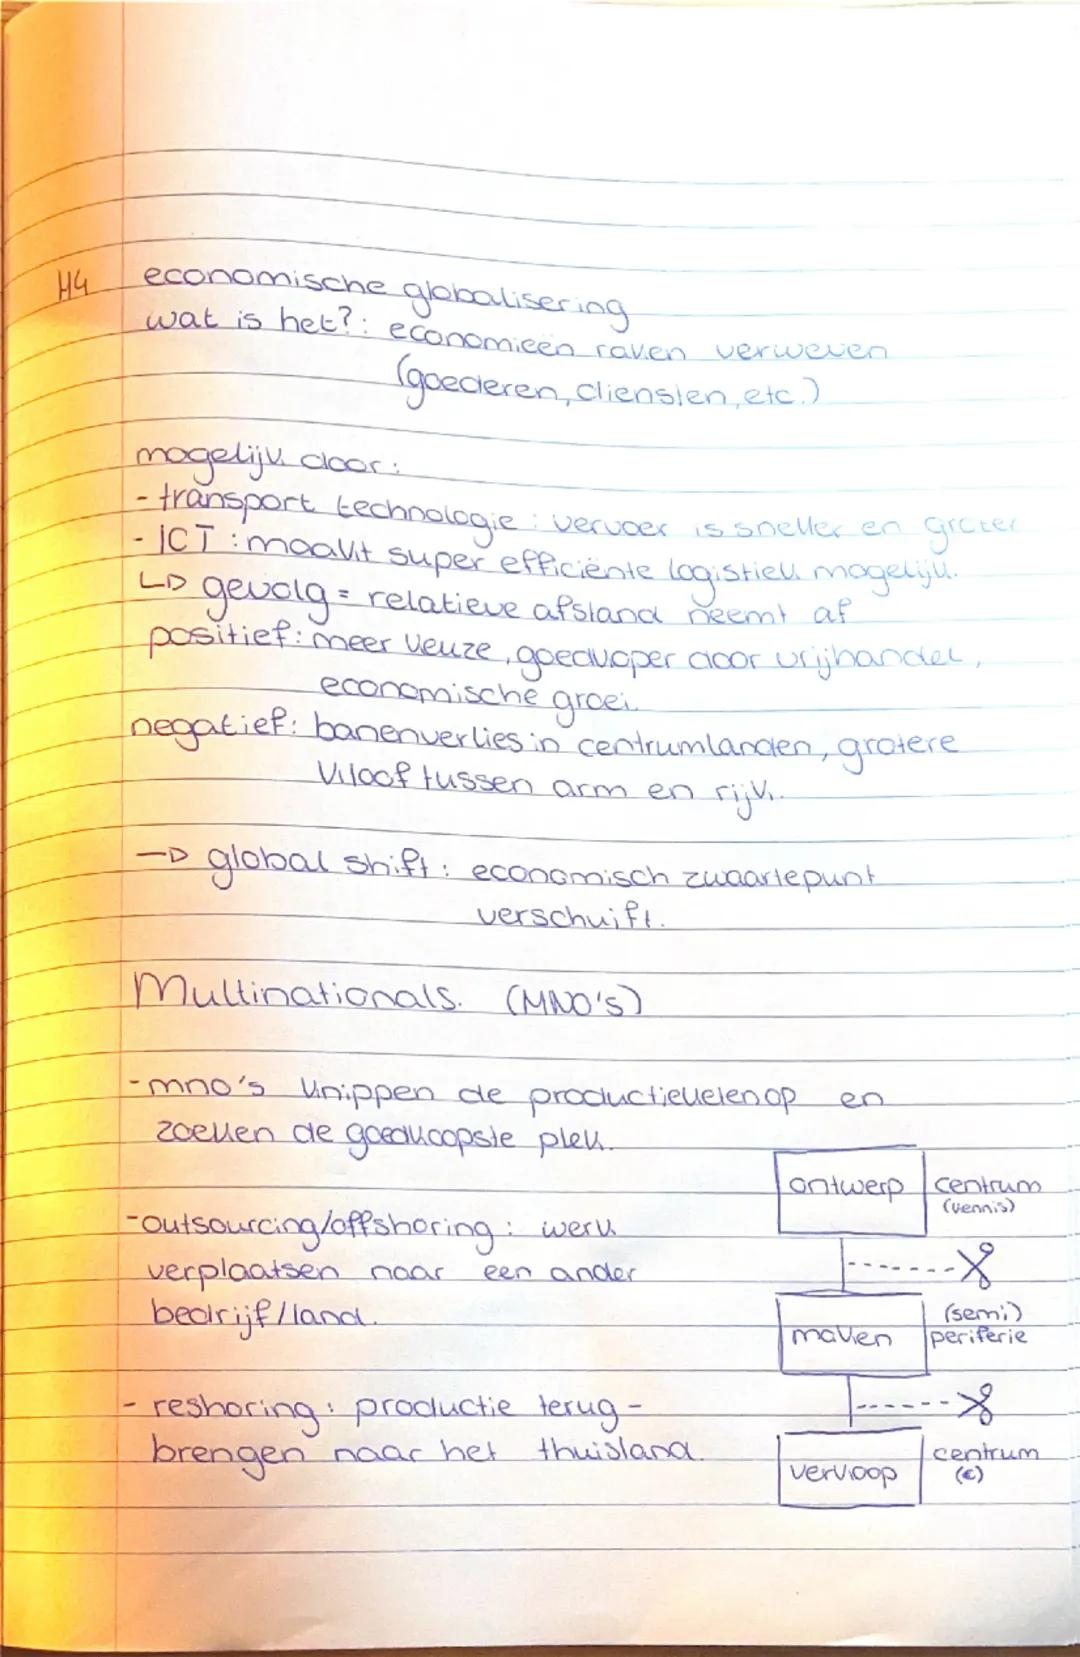 H4 economische globalisering
wat is het?: economieën raken verweven
(goederen, diensten, etc.)
mogelijk door:
- transport technologie: vervoer is sneller en groter
- ICT: maakt super efficiënte logistiek mogelijk.
↳ gevolg = relatieve afstand neemt af
positief: meer keuze, goedkoper door vrijhandel,
economische groei.
negatief: banenverlies in centrumlanden, grotere
kloof tussen arm en rijk.
→ global shift: economisch zwaartepunt
verschuift.
Multinationals. (MNO's)
- mno's knippen de productieketen op en
zoeken de goedkoopste plek.
- outsourcing/offshoring: werk
verplaatsen naar een ander
bedrijf/land.
- reshoring: productie terug-
brengen naar het thuisland.
ontwerp centrum
(kennis)
maken (semi)
periferie
verkoop centrum
(€)